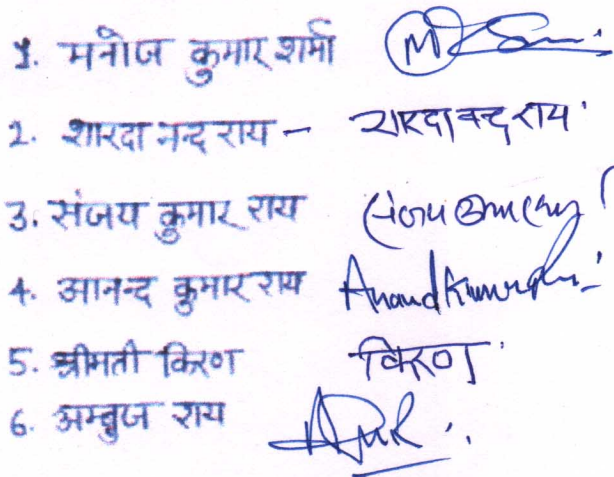 1. मनोज कुमार शर्मा
2. शारदा नन्द राय - शारदा नन्द राय
3. संजय कुमार राय
4. आनन्द कुमार राय Anand Kumar
5. श्रीमती किरण किरण
6. अम्बुज राय